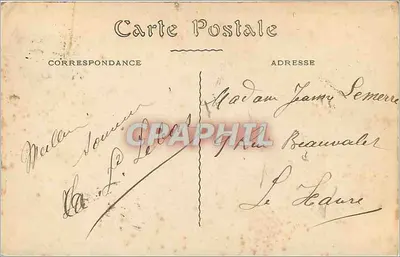 Carte Postale
CORRESPONDANCE
ADRESSE
Meilleur
Souvenir
L.
Madame Jeanne Lemerre
9 Rue Beauvallet
Le Havre
CPAPHIL.com